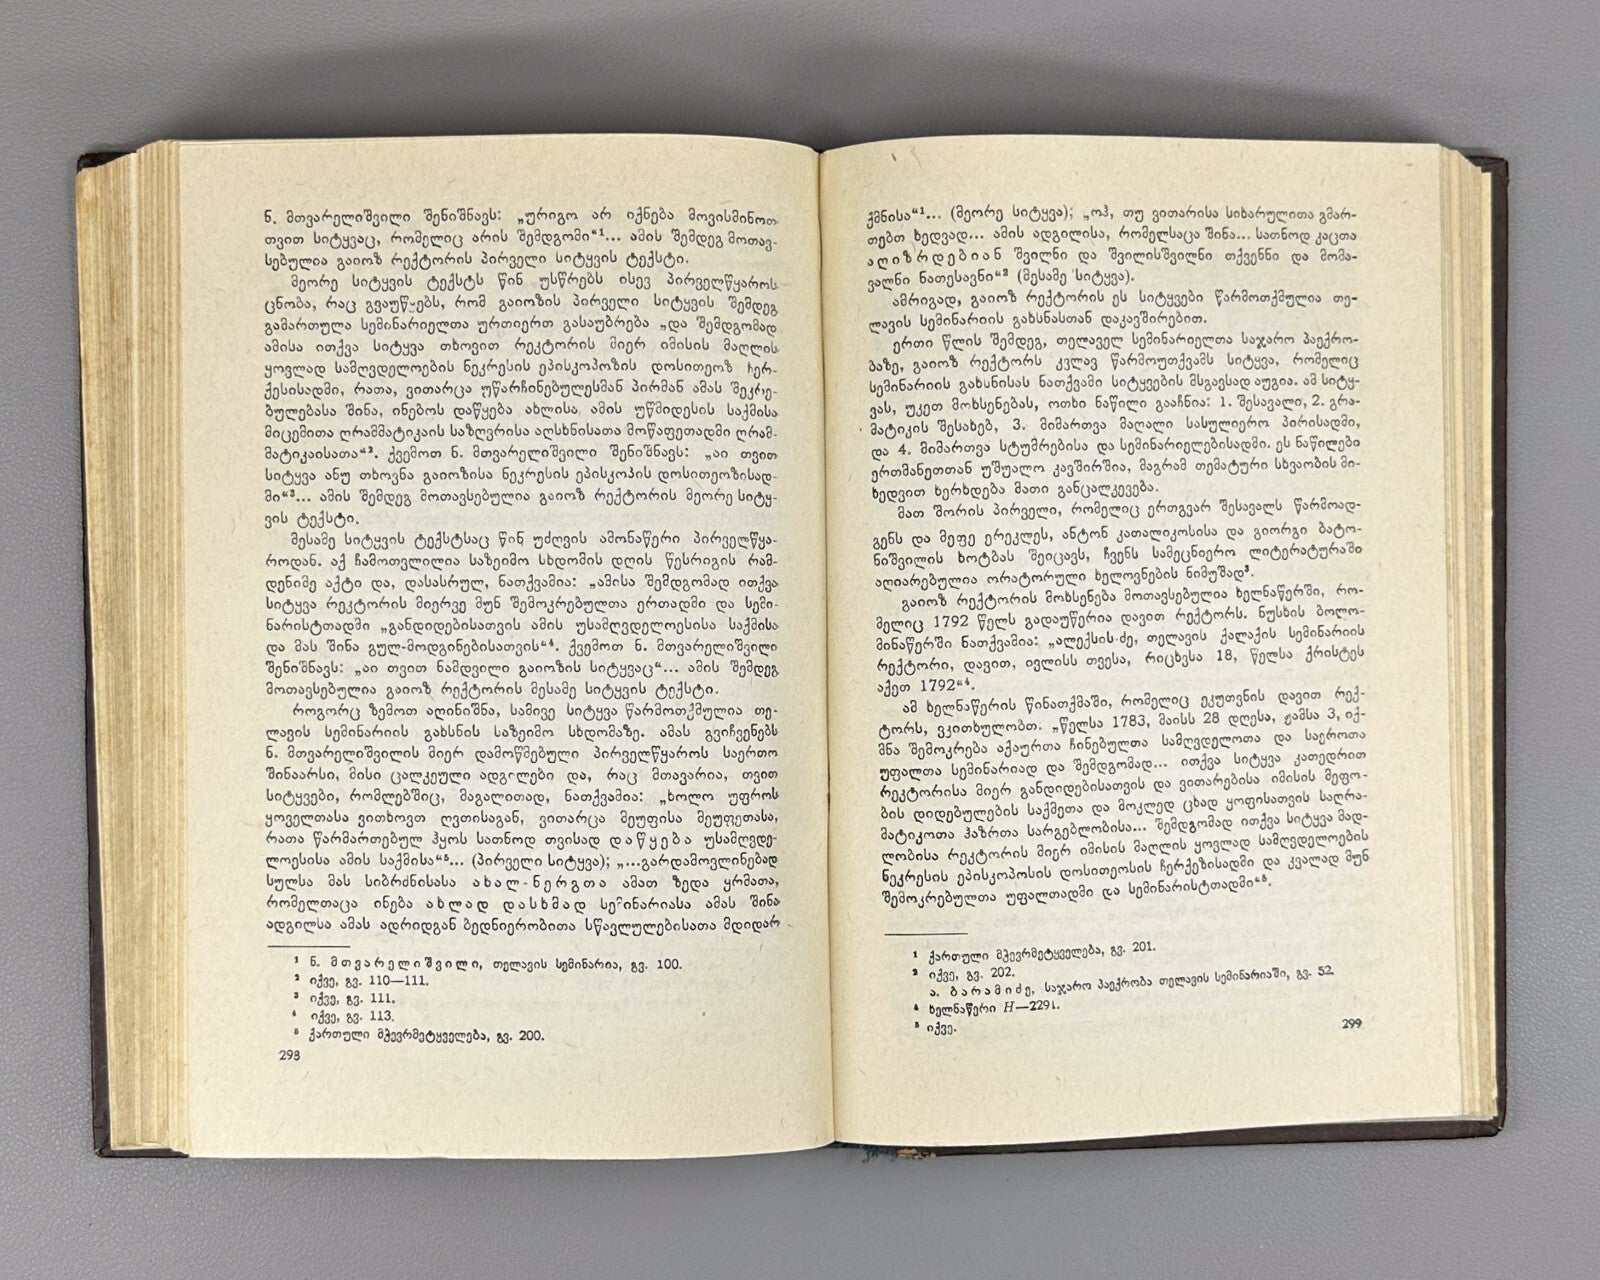 ნ. მთვარელიშვილი შენიშნავს: „ურიგო არ იქნება მოვისმინოთ
თვით სიტყვაც, რომელიც არის შემდგომი“¹... ამის შემდეგ მოთავ-
სებულია გაიოზ რექტორის პირველი სიტყვის ტექსტი.
მეორე სიტყვის ტექსტს წინ უსწრებს ისევ პირველწყაროს
ცნობა, რაც გვაუწყებს, რომ გაიოზის პირველი სიტყვის შემდეგ
გამართულა სემინარიელთა ურთიერთ გასაუბრება „და შემდგომად
ამისა ითქვა სიტყვა თხოვით რეკტორის მიერ იმისის მაღლის
ყოვლად სამღვდელოების ნეკრესის ეპისკოპოზის დოსითეოზ ჩერ-
ქესისადმი, რათა, ვითარცა უწარჩინებულესმან პირმან ამას შეკრე-
ბულებასა შინა, ინებოს დაწყება ახლისა ამის უწმიდესის საქმისა
მიცემითა ღრამმატიკაის საზღვრისა აღსხნისათა მოწაფეთადმი ღრამ-
მატიკაისათა“². ქვემოთ ნ. მთვარელიშვილი შენიშნავს: „აი თვით
სიტყვა ანუ თხოვნა გაიოზისა ნეკრესის ეპისკოპის დოსითეოზისად-
მი“³... ამის შემდეგ მოთავსებულია გაიოზ რექტორის მეორე სიტყ-
ვის ტექსტი.
მესამე სიტყვის ტექსტსაც წინ უძღვის ამონაწერი პირველწყა-
როდან. აქ ჩამოთვლილია საზეიმო სხდომის დღის წესრიგის რამ-
დენიმე აქტი და, დასასრულ, ნათქვამია: „ამისა შემდგომად ითქვა
სიტყვა რეკტორის მიერვე მუნ შემოკრებულთა ერთადმი და სემი-
ნარისტთადმი „განდიდებისათვის ამის უსამღვდელოესისა საქმისა
და მას შინა გულ-მოდგინებისათვის“⁴. ქვემოთ ნ. მთვარელიშვილი
შენიშნავს: „აი თვით ნამდვილი გაიოზის სიტყვაც“... ამის შემდეგ
მოთავსებულია გაიოზ რექტორის მესამე სიტყვის ტექსტი.
როგორც ზემოთ აღინიშნა, სამივე სიტყვა წარმოთქმულია თე-
ლავის სემინარიის გახსნის საზეიმო სხდომაზე. ამას გვიჩვენებს
ნ. მთვარელიშვილის მიერ დამოწმებული პირველწყაროს საერთო
შინაარსი, მისი ცალკეული ადგილები და, რაც მთავარია, თვით
სიტყვები, რომლებშიც, მაგალითად, ნათქვამია: „ხოლო უფროს
ყოველთასა ვითხოვთ ღვთისაგან, ვითარცა მეუფისა მეუფეთასა,
რათა წარმართებულ ჰყოს სათნოდ თვისად დაწყება უსამღვდე-
ლოესისა ამის საქმისა“⁵... (პირველი სიტყვა); „...გარდამოვლინებად
სულსა მას სიბრძნისასა ახალ-ნერგთა ამათ ზედა ყრმათა,
რომელთაცა ინება ახლად დასხმად სემინარიასა ამას შინა
ადგილსა ამას ადრიდგან ბედნიერობითა სწავლულებისათა მდიდარ
¹ ნ. მთვარელიშვილი, თელავის სემინარია, გვ. 100.
² იქვე, გვ. 110—111.
³ იქვე, გვ. 111.
⁴ იქვე, გვ. 113.
⁵ ქართული მჭევრმეტყველება, გვ. 200.
298
ქმნისა“¹... (მეორე სიტყვა); „ოჰ, თუ ვითარისა სიხარულითა გმარ-
თებთ ხედვად... ამის ადგილისა, რომელსაცა შინა... სათნოდ კაცთა
აღიზრდებიან შვილნი და შვილისშვილნი თქვენნი და მომა-
ვალნი ნათესავნი“² (მესამე სიტყვა).
ამრიგად, გაიოზ რექტორის ეს სიტყვები წარმოთქმულია თე-
ლავის სემინარიის გახსნასთან დაკავშირებით.
ერთი წლის შემდეგ, თელაველ სემინარიელთა საჯარო პაექრო-
ბაზე, გაიოზ რექტორს კვლავ წარმოუთქვამს სიტყვა, რომელიც
სემინარიის გახსნისას ნათქვამი სიტყვების მსგავსად აუგია. ამ სიტყ-
ვას, უკეთ მოხსენებას, ოთხი ნაწილი გააჩნია: 1. შესავალი, 2. გრა-
მატიკის შესახებ, 3. მიმართვა მაღალი სასულიერო პირისადმი,
და 4. მიმართვა სტუმრებისა და სემინარიელებისადმი. ეს ნაწილები
ერთმანეთთან უშუალო კავშირშია, მაგრამ თემატური სხვაობის მი-
ხედვით ხერხდება მათი განცალკევება.
მათ შორის პირველი, რომელიც ერთგვარ შესავალს წარმოად-
გენს და მეფე ერეკლეს, ანტონ კათალიკოსისა და გიორგი ბატო-
ნიშვილის ხოტბას შეიცავს, ჩვენს სამეცნიერო ლიტერატურაში
აღიარებულია ორატორული ხელოვნების ნიმუშად³.
გაიოზ რექტორის მოხსენება მოთავსებულია ხელნაწერში, რო-
მელიც 1792 წელს გადაუწერია დავით რექტორს. ნუსხის ბოლო-
მინაწერში ნათქვამია: „ალექსის-ძე, თელავის ქალაქის სემინარიის
რექტორი, დავით, ივლისს თვესა, რიცხვსა 18, წელსა ქრისტეს
აქეთ 1792“⁴.
ამ ხელნაწერის წინათქმაში, რომელიც ეკუთვნის დავით რექ-
ტორს, ვკითხულობთ. „წელსა 1783, მაისს 28 დღესა, ჟამსა 3, იქ-
მნა შემოკრება აქაურთა ჩინებულთა სამღვდელოთა და საეროთა
უფალთა სემინარიად და შემდგომად... ითქვა სიტყვა კათედრით
რეკტორისა მიერ განდიდებისათვის და ვითარებისა იმისის მეფო-
ბის დიდებულების საქმეთა და მოკლედ ცხად ყოფისათვის საღრა-
მატიკოთა ჰაზრთა სარგებლობისა... შემდგომად ითქვა სიტყვა მად-
ლობისა რეკტორის მიერ იმისის მაღლის ყოვლად სამღვდელოების
ნეკრესის ეპისკოპოსის დოსითეოსის ჩერქეზისადმი და კვალად მუნ
შემოკრებულთა უფალთადმი და სემინარისტთადმი“⁵.
¹ ქართული მჭევრმეტყველება, გვ. 201.
² იქვე, გვ. 202.
ა. ბარამიძე, საჯარო პაექრობა თელავის სემინარიაში, გვ. 52.
⁴ ხელნაწერი H—2291.
⁵ იქვე.
299